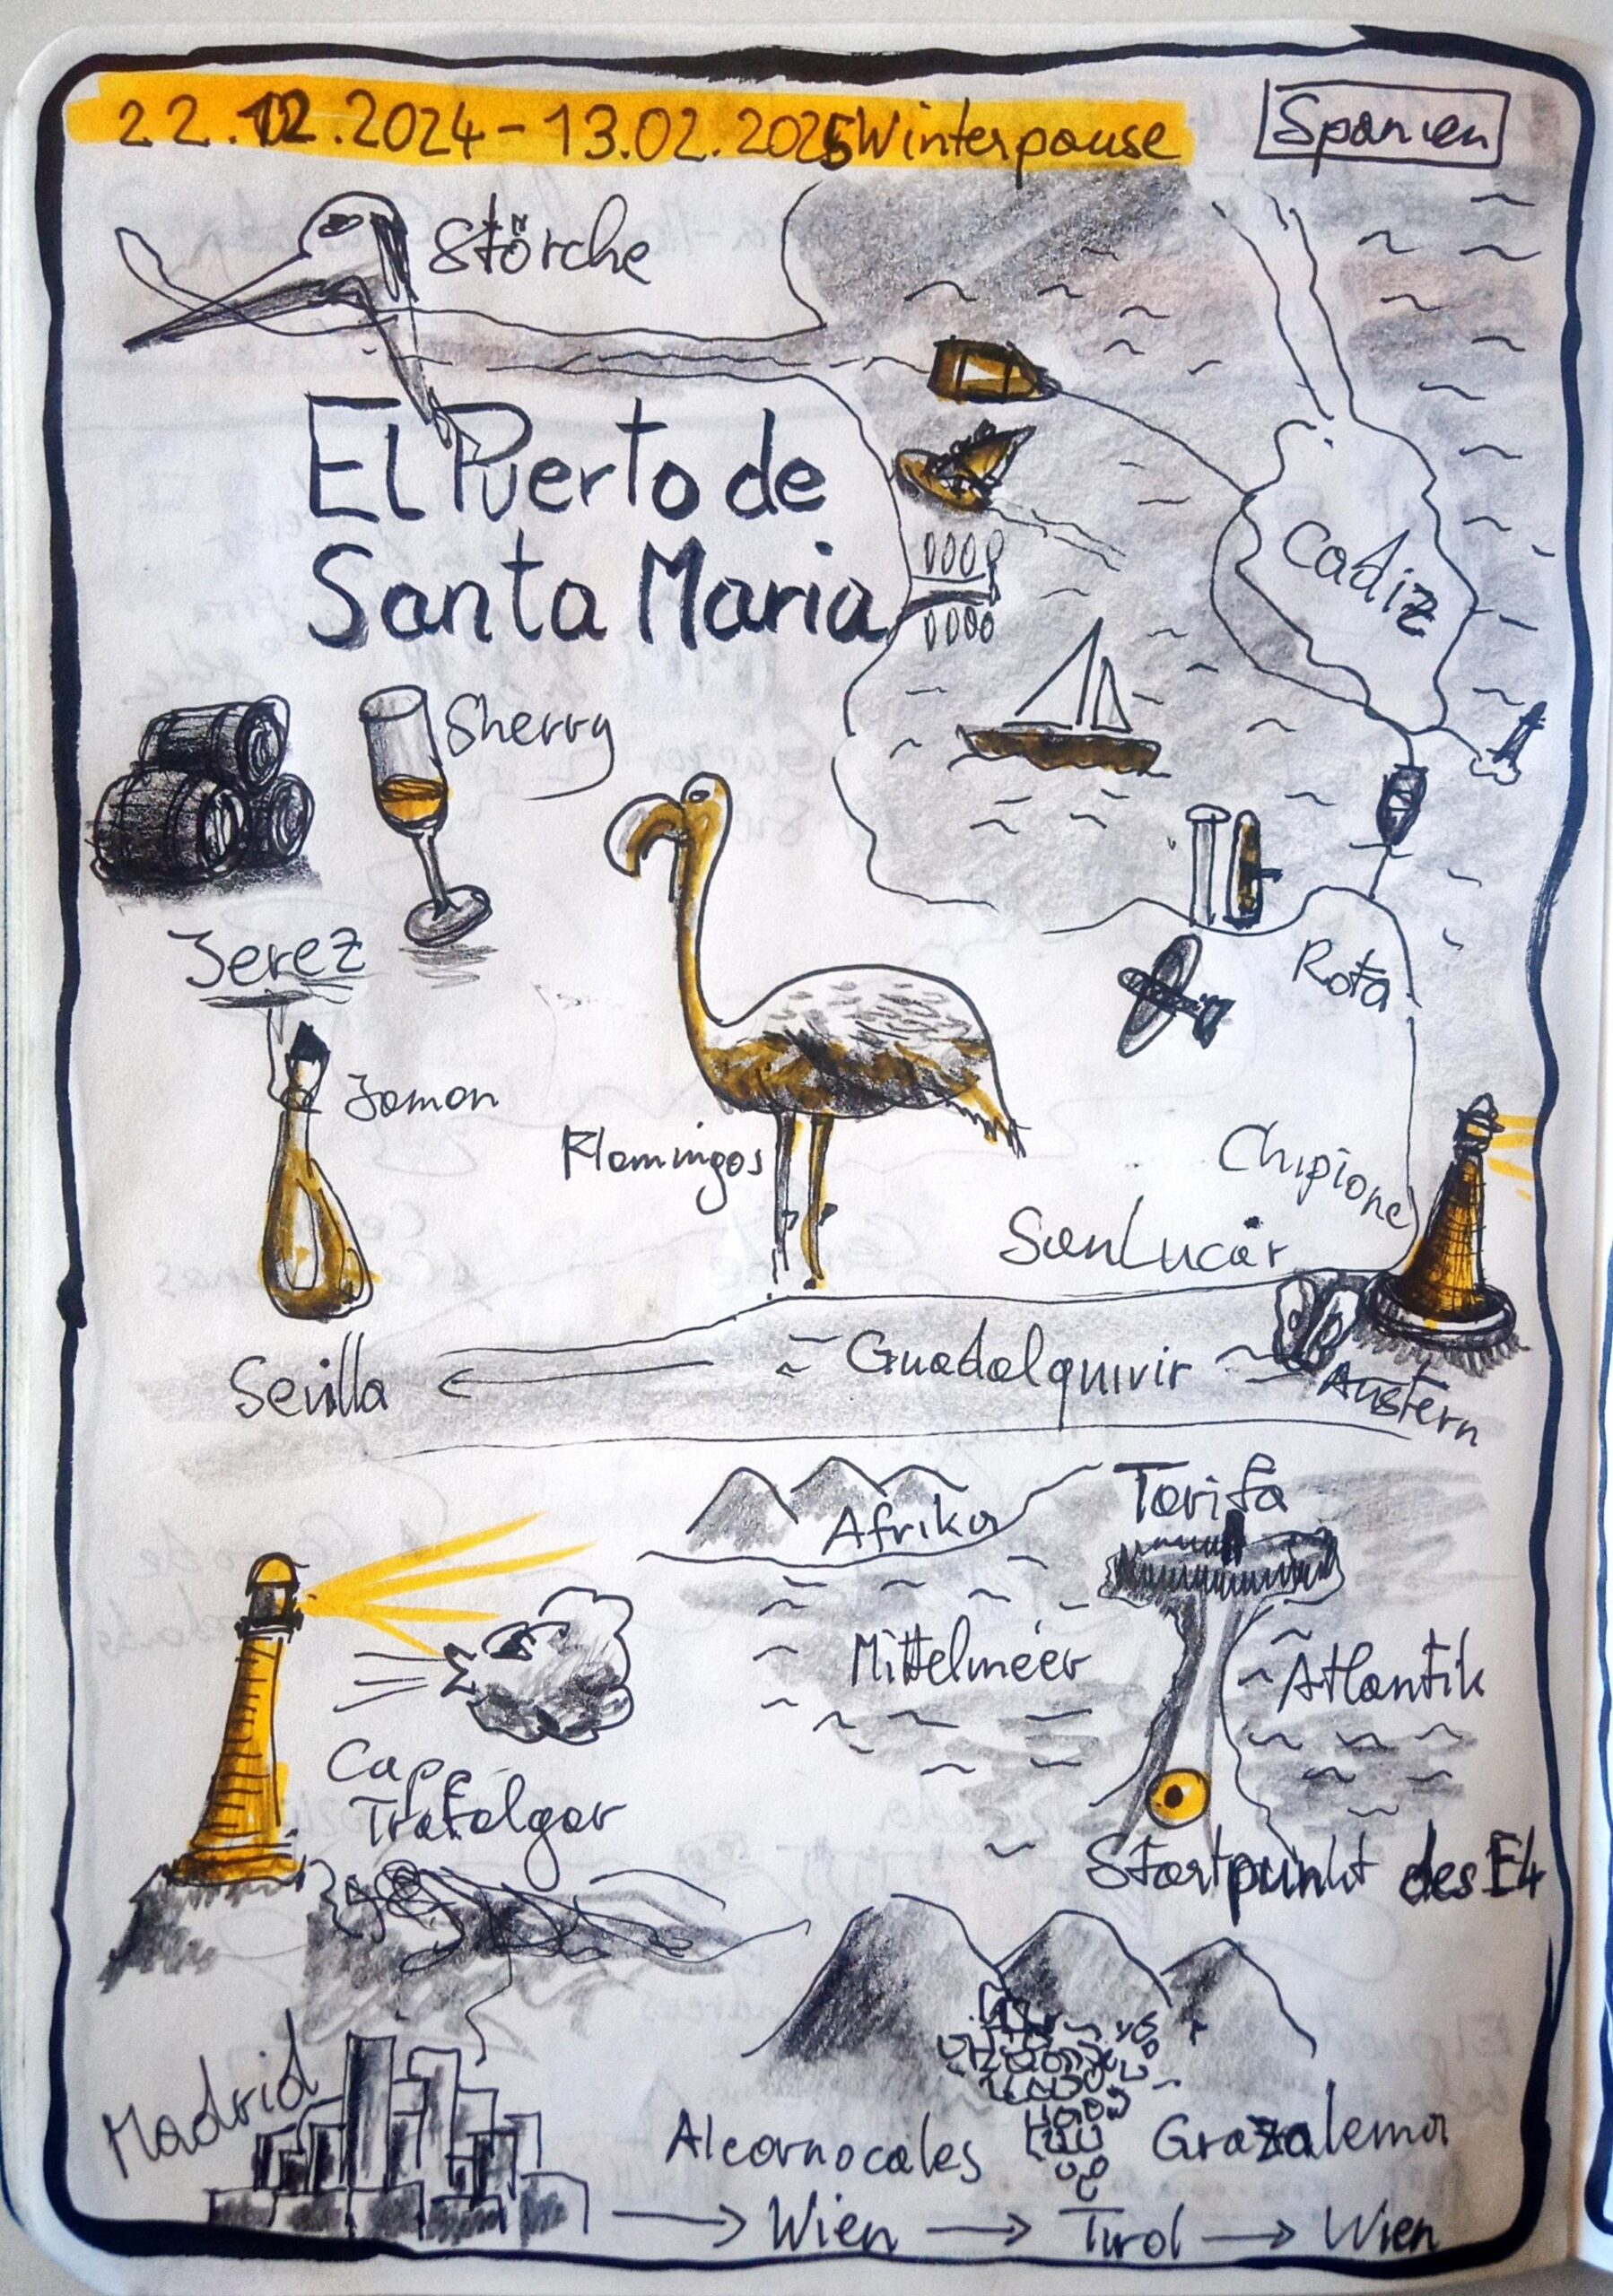 22.12.2024 - 13.02.2025 Winterpause
Spanien
Störche
El Puerto de
Santa Maria
Cadiz
Sherry
Jerez
Rota
Jamon
Flamingos
Chipione
SanLucar
Guadalquivir
Sevilla
Austern
Afrika
Tarifa
Mittelmeer
Atlantik
Cape
Trafalgar
Startpunkt des E4
Madrid
Alcornocales
Grazalema
→ Wien → Tirol → Wien